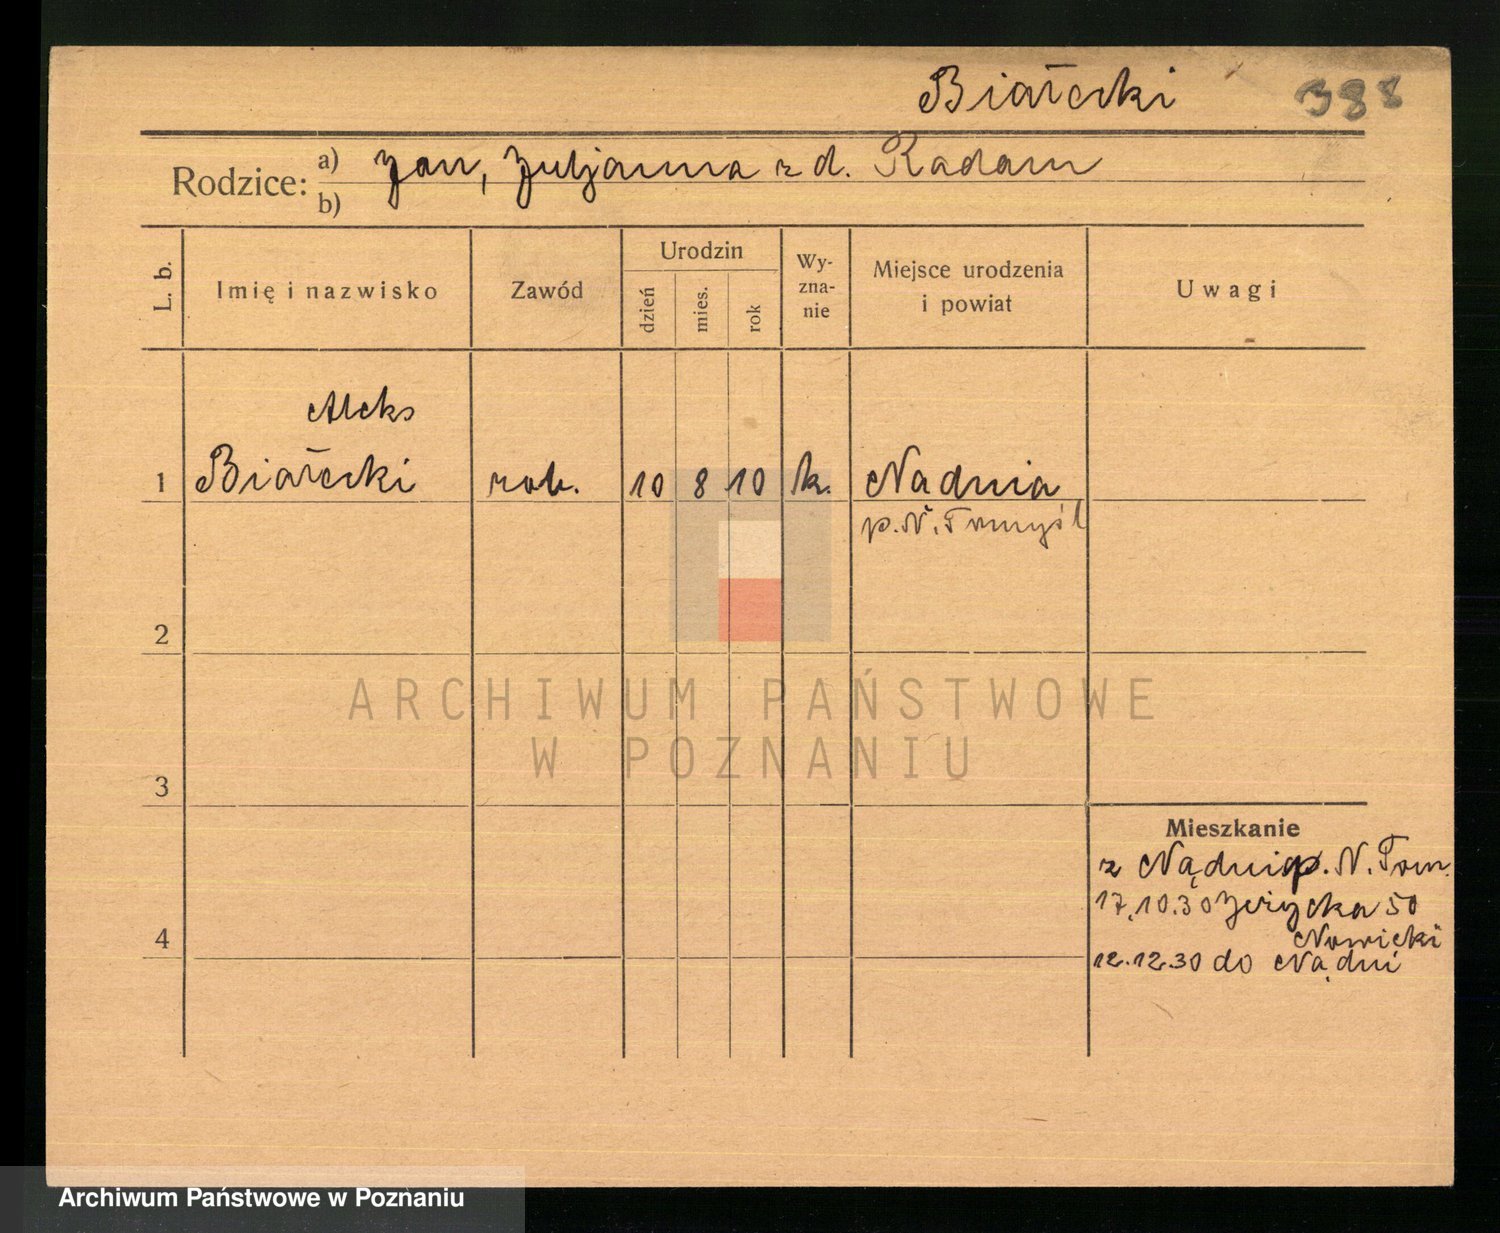 Białecki 388
Rodzice: a) Jan, Juljanna z d. Radam
b)
L. b.
Imię i nazwisko
Zawód
Urodzin
dzień
mies.
rok
Wy-
zna-
nie
Miejsce urodzenia
i powiat
Uwagi
Aleks
1 Białecki rob. 10 8 10 k. Nądnia
p. N. Tomyśl
2
3
4
Mieszkanie
z Nądni p. N. Tom.
17.10.30 Jeżycka 50
Nowicki
12.12.30 do Nądni
ARCHIWUM PAŃSTWOWE
W POZNANIU
Archiwum Państwowe w Poznaniu